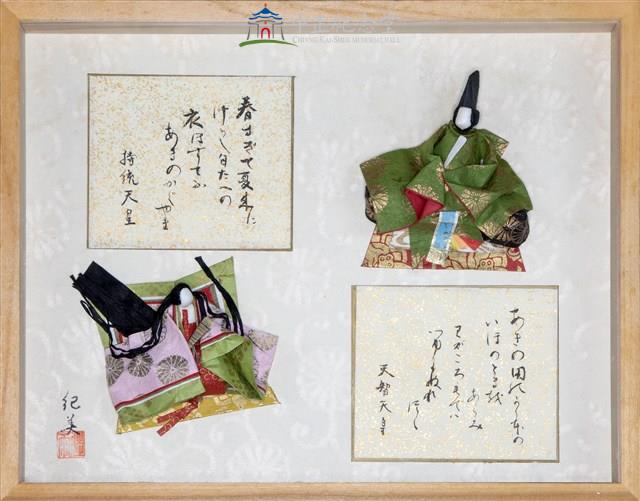 中正紀念堂
CHIANG KAI-SHEK MEMORIAL HALL
春すぎて夏来に
けらし白たへの
衣ほすてふ
あまのかぐやま
持統天皇
あきの田のかりほの
いほのとまを
あらみ
わがころもでは
つゆにぬれ
つゝ
天智天皇
紀美